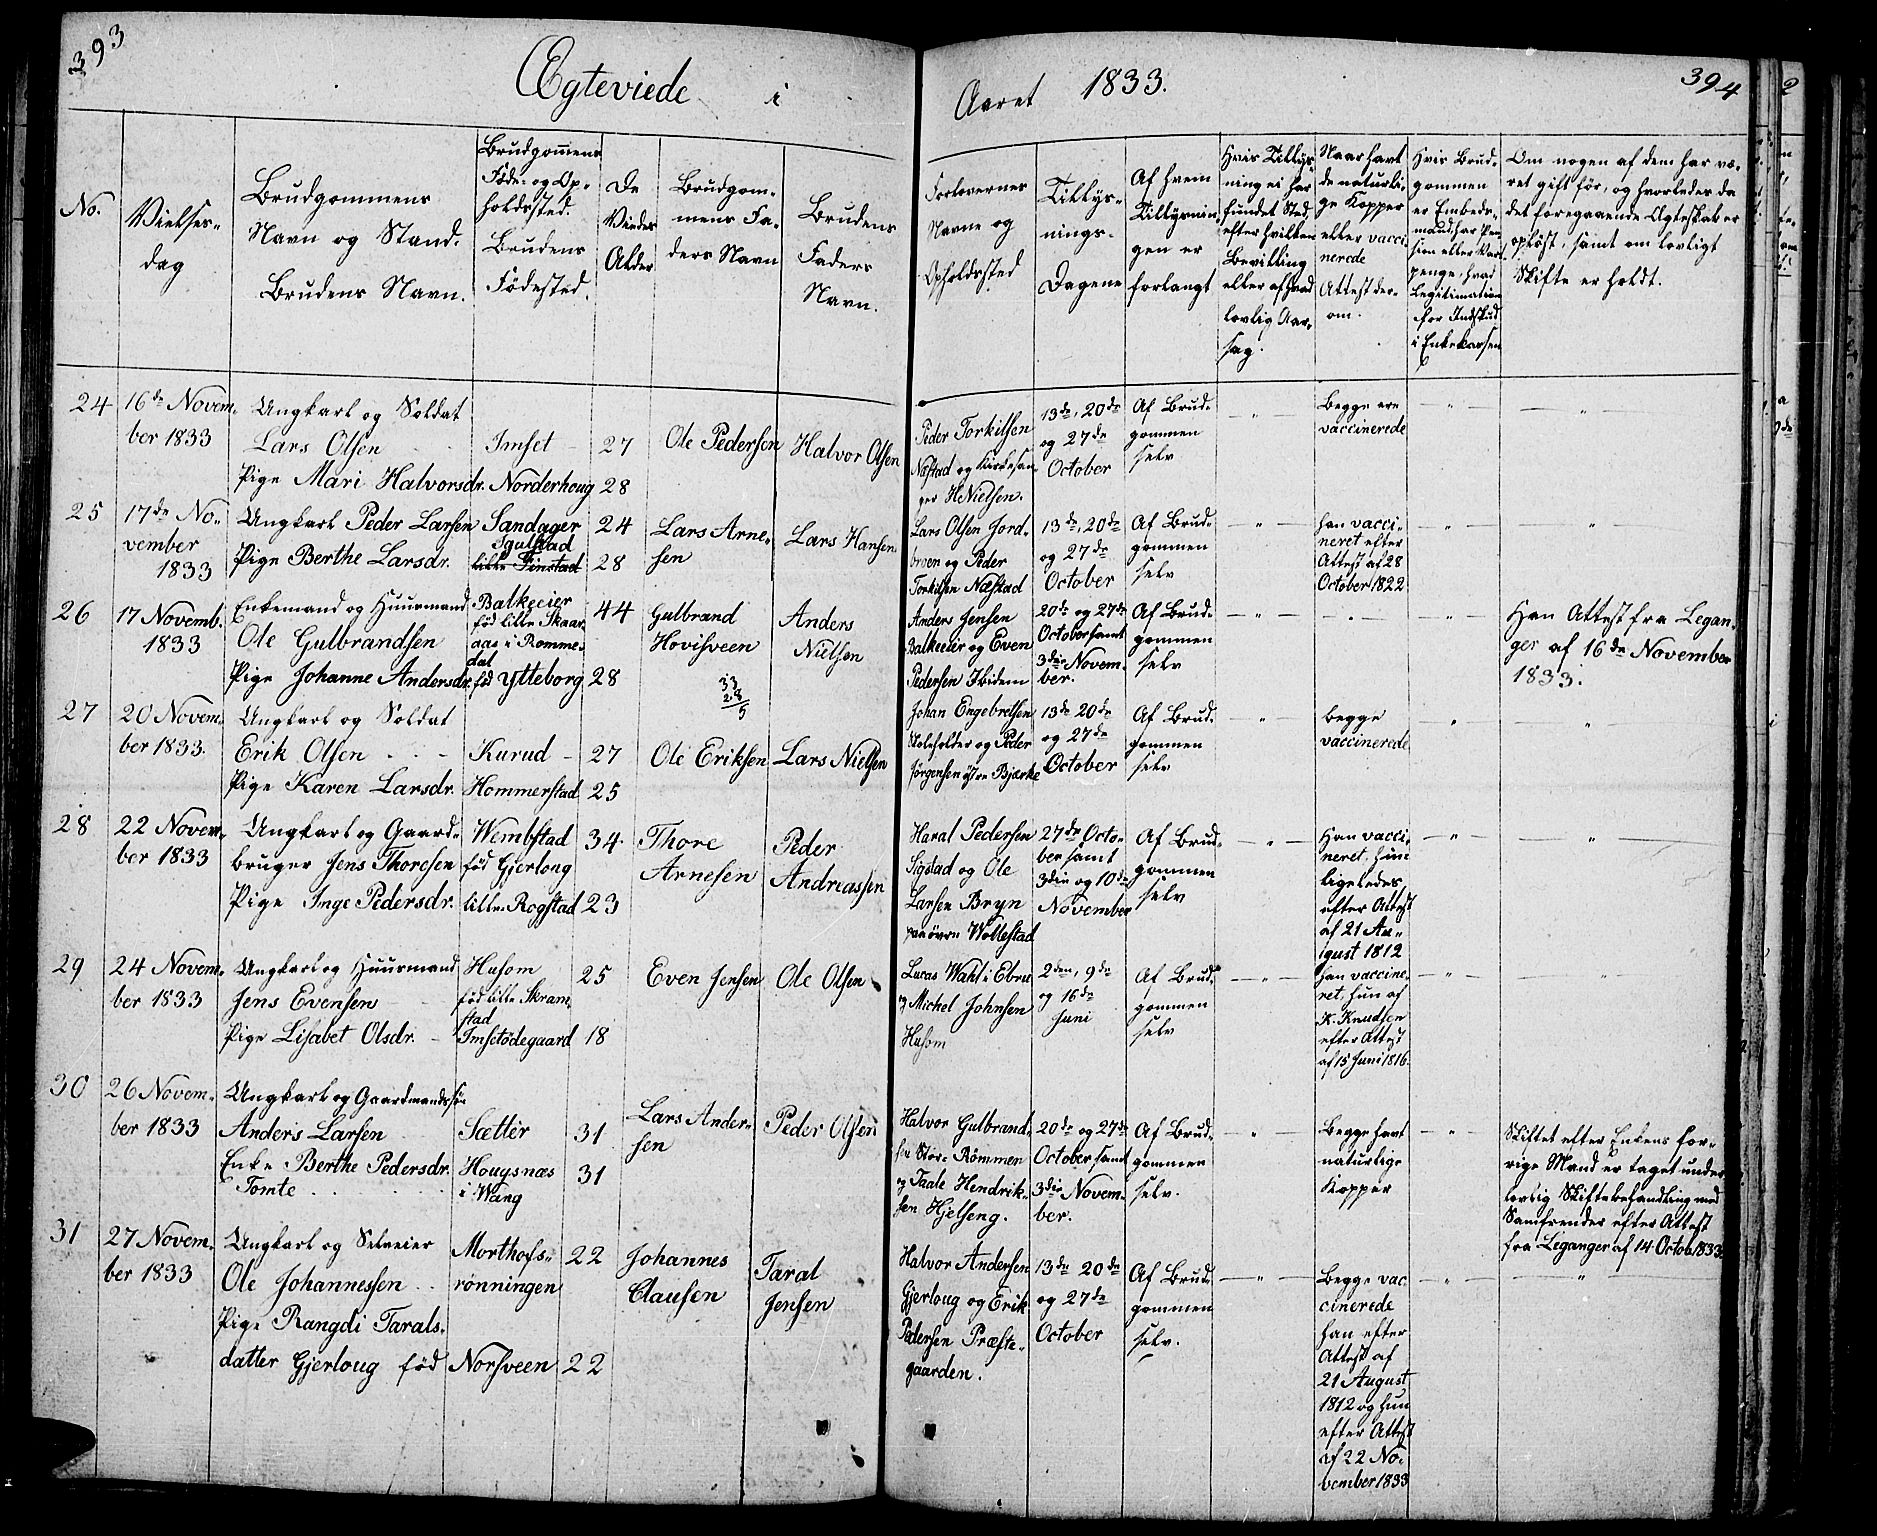 393
Ægteviede i
Aaret 1833.
394
No.
Vielses-
dag
Brudgommens
Navn og Stand.
Brudens Navn.
Brudgom̄ens
Føde- og Op-
holdssted.
Brudens
Födested.
De
Viedes
Alder
Brudgom-
mens Fa-
ders Navn
Brudens
Faders
Navn.
Forlovernes
Navne og
Opholdssted
Tillys-
nings-
Dagene
Af hvem
Tillysnin-
gen er
forlangt
Hvis Tillys-
ning ei har
fundet Sted,
efter hvilken
Bevilling
eller af hvad
lovlig Aar-
sag.
Naar havt
de naturli-
ge Kopper
eller vacci-
nerede
Attest der-
om.
Hvis Brud-
gommen
er Embeds-
mand, har Pen-
sion eller Vart-
penge, hvad
Legitimation
for Indskud
i Enkekassen
Om nogen af dem har væ-
ret gift för, og hvorledes da
det foregaaende Ægteskab er
oplöst, samt om lovligt
Skifte er holdt.
24
16de Novem-
ber 1833
Ungkarl og Soldat
Lars Olsen
Pige Mari Halvorsdr.
Imset
Norderhoug
27
28
Ole Pedersen
Halvor Olsen
Peder Torkilsen
Næstad og Kirkesan-
ger H Nielsen.
13de, 20de
og 27de
October
Af Brud-
gommen
selv
Begge ere
vaccinerede
25
17de No-
vember
1833
Ungkarl Peder Larsen
Pige Berthe Larsdr.
Sandager
Igulstad
lille Finstad
24
28
Lars Arne-
sen
Lars Hansen
Lars Olsen Jord-
broen og Peder
Torkilsen Næstad
13de, 20de
og 27de
October
Af Brud-
gommen
selv
han vacci-
neret efter
Attest af 28
October 1822
26
17 Novemb.
1833
Enkemand og Huusmand
Ole Gulbrandsen
Pige Johanne Andersdr.
Balkeeier
föd lille Skaar
aas i Romme-
dal
föd Ytteborg
44
28
Gulbrand
Hovisveen
33
28
5
Anders
Nielsen
Anders Jensen
Balkeeier og Even
Pedersen Ibidem
20de og 27de
October samt
3die Novem-
ber.
Af Brud-
gommen
selv
Han Attest fra Legan-
ger af 16de November
1833.
27
20 Novem-
ber 1833.
Ungkarl og Soldat
Erik Olsen
Pige Karen Larsdr.
Kurud
Hommerstad
27
25
Ole Eriksen
Lars Nielsen
Johan Engebretsen
Stolsholder og Peder
Jörgensen östre Bjerke
13de 20de
og 27de
October
Af Brud-
gommen
selv
begge
vaccinerede
28
22 Novem-
ber 1833
Ungkarl og Gaard-
bruger Jens Thoresen
Pige Inge Pedersdr.
Wembstad
föd Gjerloug
lille Rogstad
34
23
Thore
Arnesen
Peder
Andreassen
Haral Pedersen
Sigstad og Ole
Larsen Bryn
paa övre Wollestad
27de Octo-
ber samt
3die og 10de
November
Af Brud-
gommen
selv
Han vacci-
neret, hun
ligeledes
efter Attest
af 21 Au-
gust 1812
29
24 Novem-
ber 1833
Ungkarl og Huusmand
Jens Evensen
Pige Lisabet Olsdr.
Husom
föd lille Skram-
stad
Imsetödegaard
25
18
Even Jensen
Ole Olsen
Lucas Wahl i Ebru
og Michel Johnsen
Husom
2den, 9de
og 16de
Juni
Af Brud-
gommen
selv
han vaccine-
ret, hun af
K. Knudsen
efter Attest
af 15 Juni 1816.
30
26 Novem-
ber 1833
Ungkarl og Gaardmandssön
Anders Larsen
Enke Berthe Pedersdr.
Tomte
Sætter
Hougsnæs
i Wang
31
31
Lars Ander-
sen
Peder Olsen
Halvor Gulbrand-
sen Store Römmen
og Taale Hendrik-
sen Hjelseng.
20de og 27de
October samt
3die Novem-
ber.
Af Brud-
gommen
selv.
Begge havt
naturlige
Kopper
Skiftet efter Enkens for-
rige Mand er taget under
lovlig Skiftebehandling med
Samfrender efter Attest
fra Leganger af 14 Octob 1833.
31
27 Novem-
ber 1833
Ungkarl og Selveier
Ole Johannessen
Pige Rangdi Tarals-
datter Gjerloug föd
Morthofs-
rönningen
Norsveen
22
22
Johannes
Clausen
Taral
Jensen
Halvor Andersen
Gjerloug og Erik
Pedersen Præste-
gaarden.
13de 20de
og 27de
October
Af Brud-
gommen
selv.
begge vac
cinerede
han efter
Attest af
21 August
1812 og hun
efter Attest
af 22 No-
vember 1833